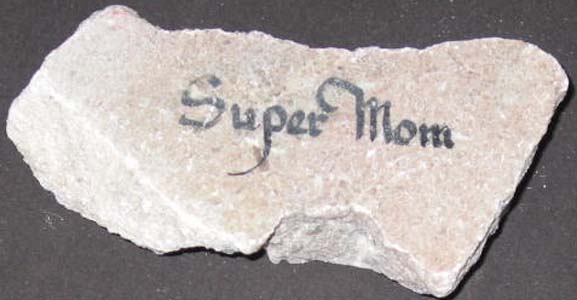 Super Mom